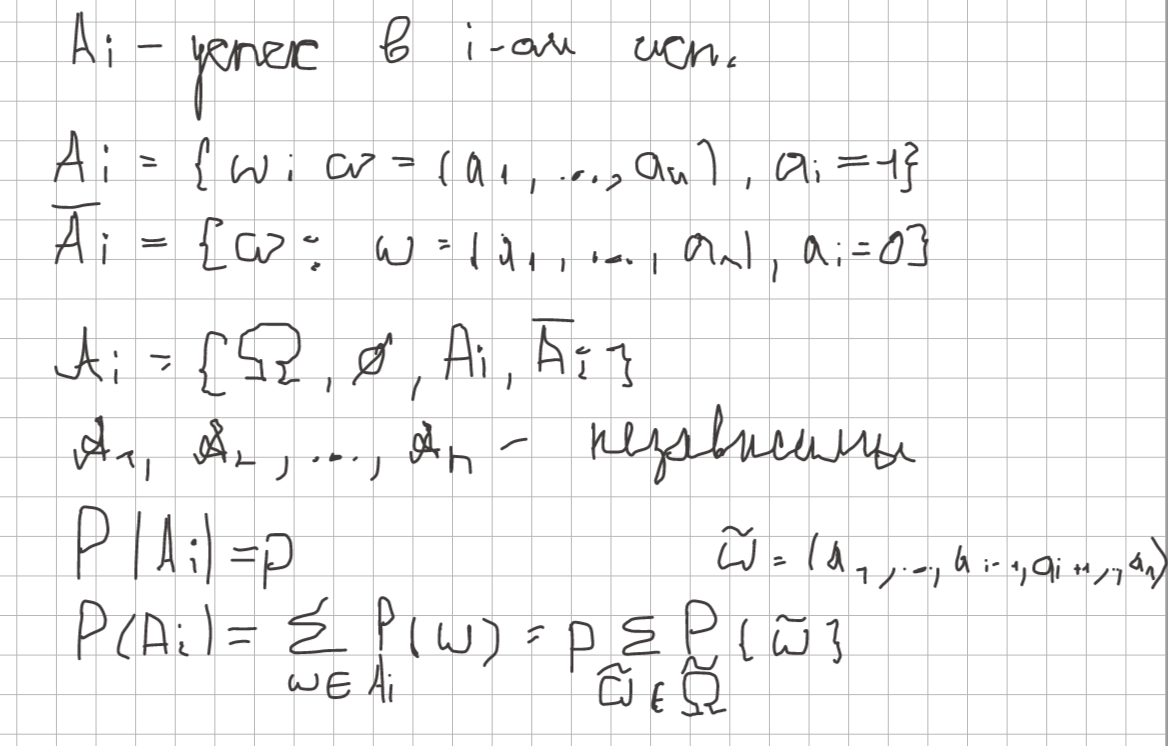 Ai - успех в i-ом исп.
Ai = {ω: ω = (a1, ..., an), ai = 1}
A̅i = {ω: ω = (a1, ..., an), ai = 0}
𝒜i = {Ω, ∅, Ai, A̅i}
𝒜1, 𝒜2, ..., 𝒜n - независимы
P(Ai) = p
ω̃ = (a1, ..., ai-1, ai+1, .., an)
P(Ai) = Σ_{ω∈Ai} P(ω) = p Σ_{ω̃∈Ω̃} P̃{ω̃}